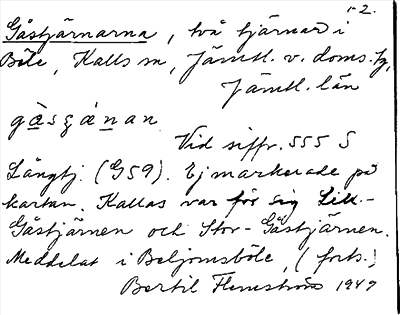 1-2.
Gåstjärnarna, två tjärnar i
Böle, Kalls sn, Jämtl. v. doms. tg,
Jämtl. län
gàsʒǽnan
Vid siffr. 555 S
Långtj. (G59). Ej markerade på
kartan. Kallas var för sig Lill-
Gåstjärnen och Stor-Gåstjärnen.
Meddelat i Beljomsböle, (forts.)
Bertil 1949